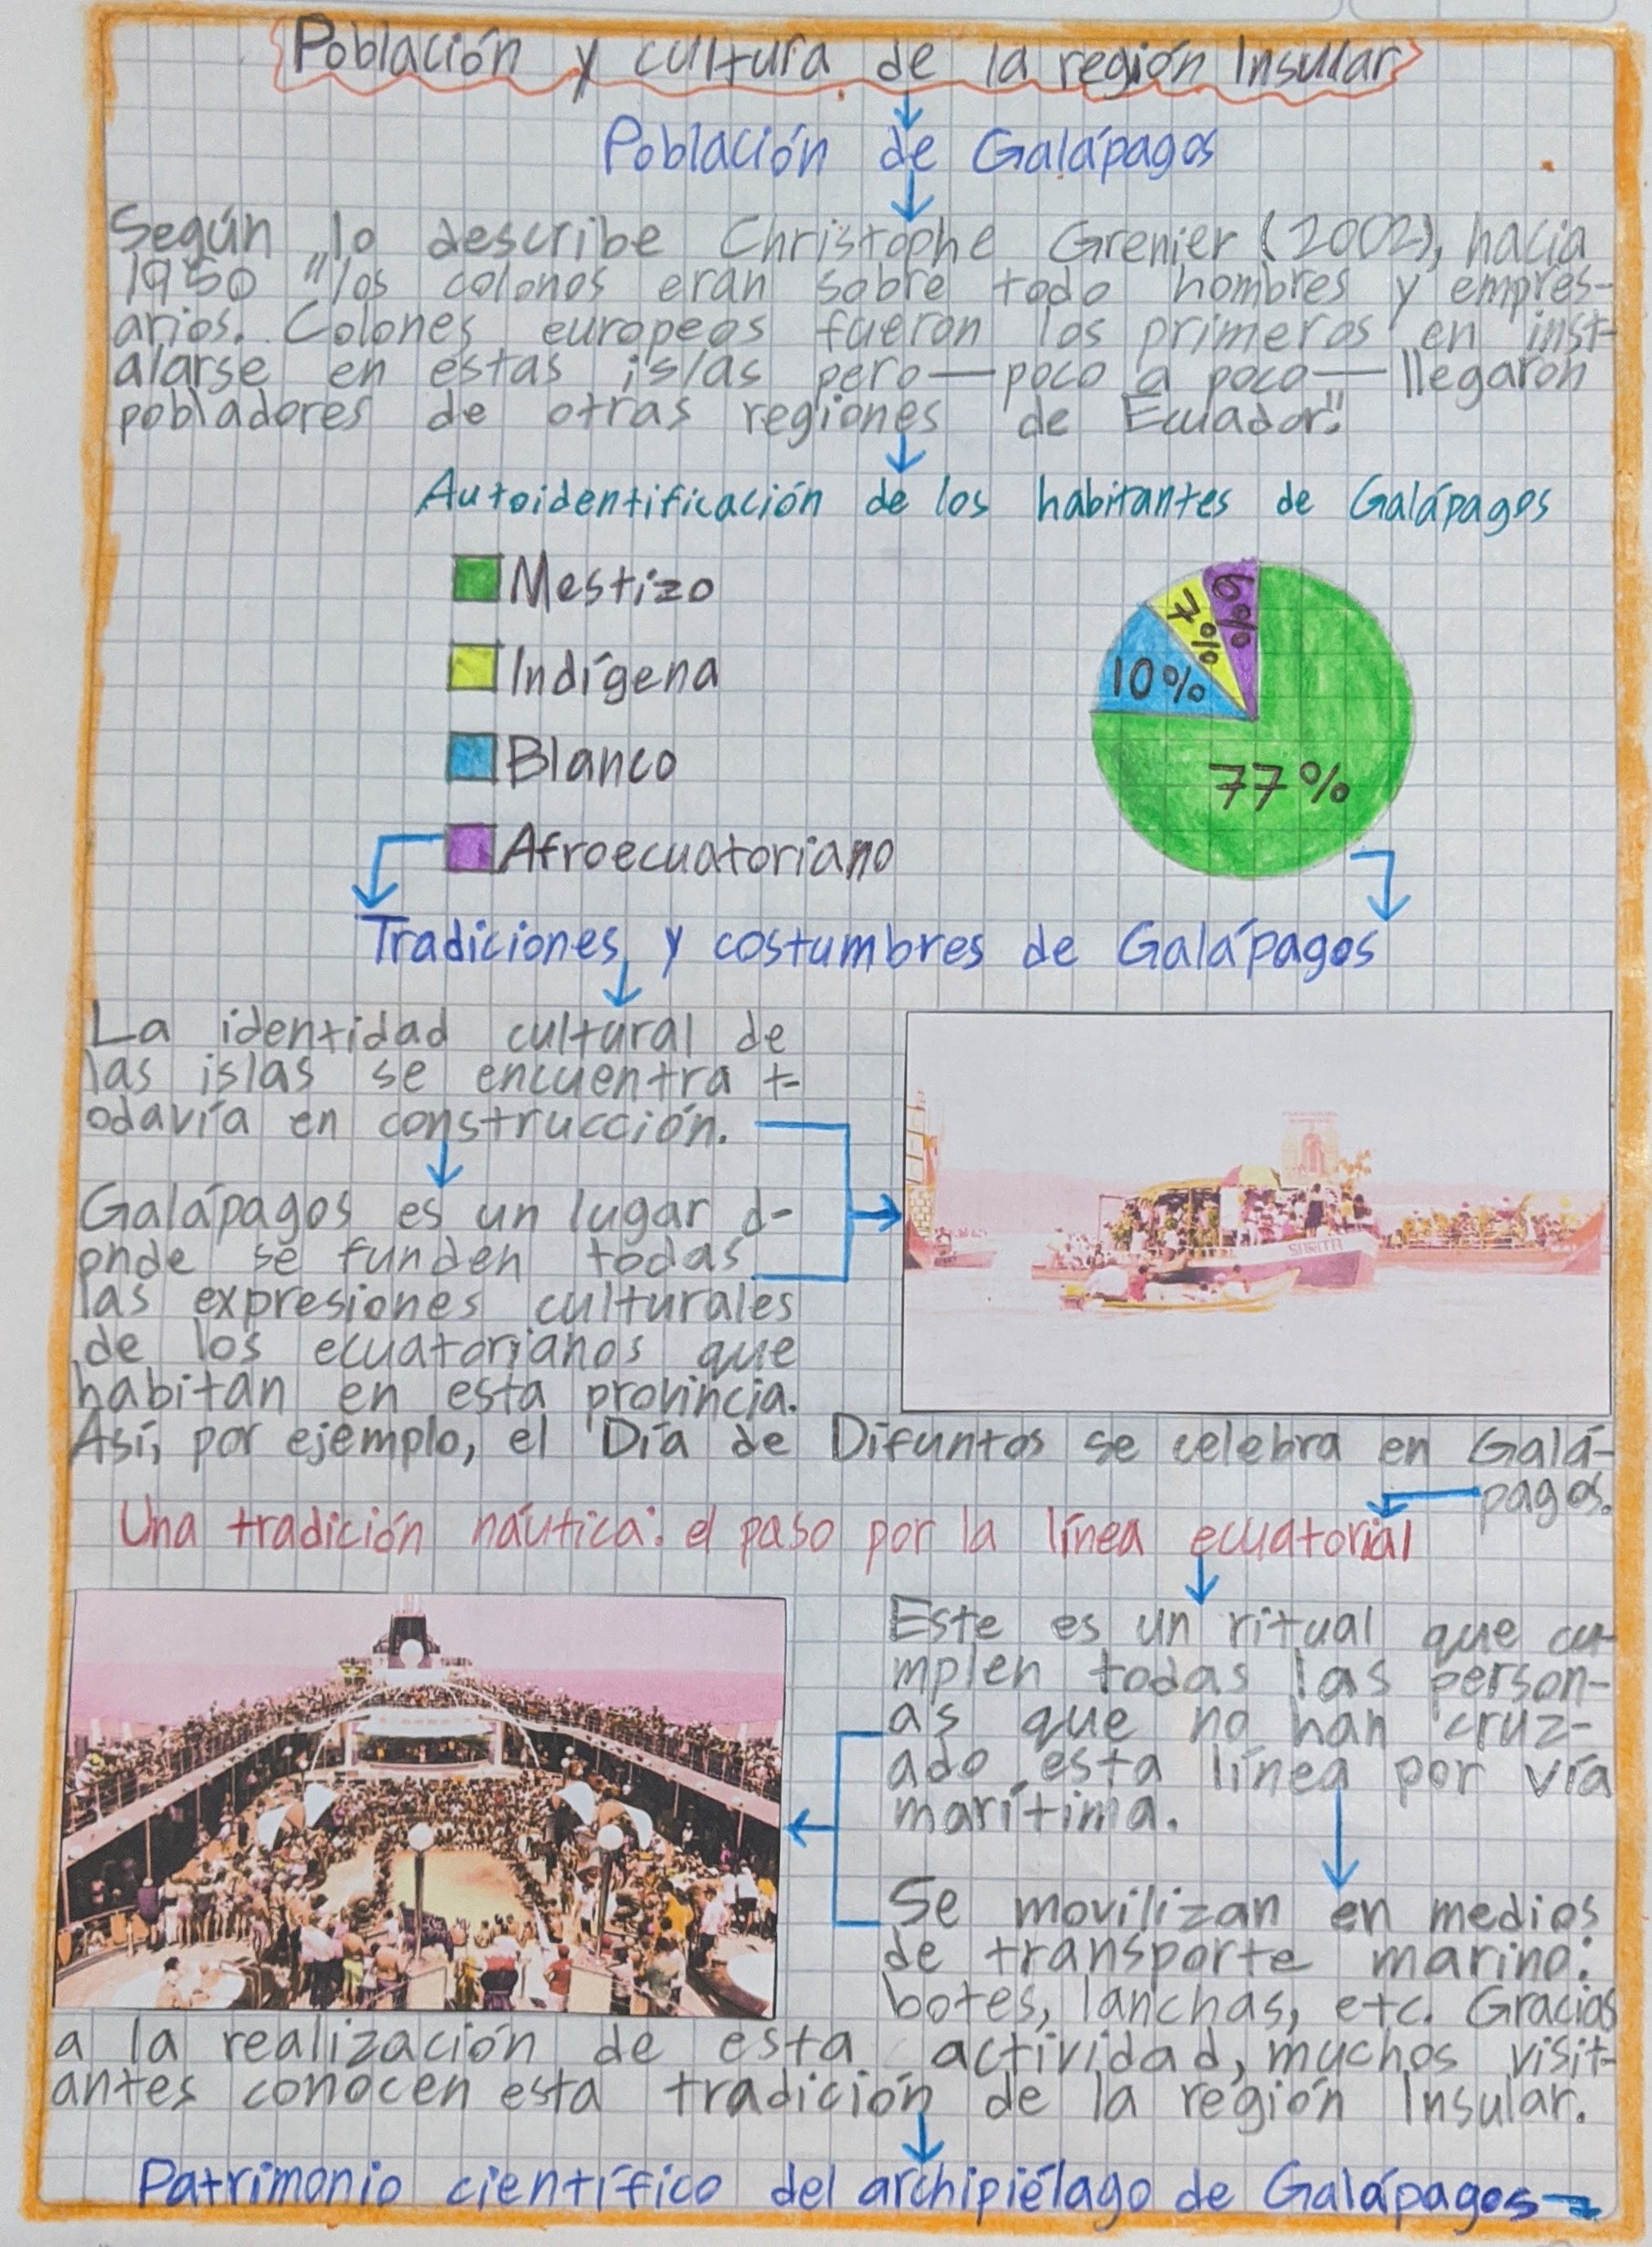 Población y cultura de la región Insular
Población de Galápagos
Según lo describe Christophe Grenier (2002), hacia
1950 "los colonos eran sobre todo hombres y empres-
arios. Colones europeos fueron los primeros en inst-
alarse en estas islas pero—poco a poco—llegaron
pobladores de otras regiones de Ecuador."
Autoidentificación de los habitantes de Galápagos
Mestizo
Indígena
Blanco
Afroecuatoriano
6%
7%
10%
77%
Tradiciones y costumbres de Galápagos
La identidad cultural de
las islas se encuentra t-
odavía en construcción.
Galápagos es un lugar d-
onde se funden todas
las expresiones culturales
de los ecuatorianos que
habitan en esta provincia.
Así, por ejemplo, el Día de Difuntos se celebra en Galá-
pagos.
SARITA
Una tradición náutica: el paso por la línea ecuatorial
Este es un ritual que cu-
mplen todas las person-
as que no han cruz-
ado esta línea por vía
marítima.
Se movilizan en medios
de transporte marino:
botes, lanchas, etc. Gracias
a la realización de esta actividad, muchos visit-
antes conocen esta tradición de la región Insular.
Patrimonio científico del archipiélago de Galápagos